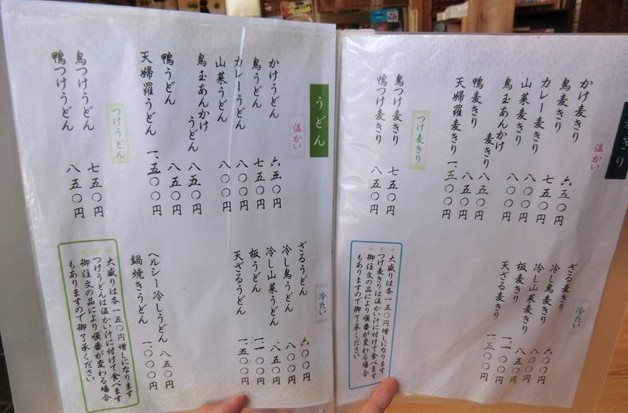 きり
温かい
かけ麦きり 六五〇円
鳥麦きり 七五〇円
カレー麦きり 八〇〇円
山菜麦きり 八〇〇円
鳥玉あんかけ
麦きり 八五〇円
鴨麦きり 八五〇円
天婦羅麦きり 一、三五〇円
つけ麦きり
鳥つけ麦きり 七五〇円
鴨つけ麦きり 八五〇円
冷たい
ざる麦きり 六〇〇円
冷し鳥麦きり 八〇〇円
冷し山菜麦きり 八五〇円
板麦きり
天ざる麦きり
大盛りは各一五〇円増しになります
つけ麦きりは温かい汁に付けて食べます
御注文の品により順番が変わる場合
もありますので御了承ください
うどん
温かい
かけうどん 六五〇円
鳥うどん 七五〇円
カレーうどん 八〇〇円
山菜うどん 八〇〇円
鳥玉あんかけ
うどん 八五〇円
鴨うどん 八五〇円
天婦羅うどん 一、三五〇円
つけうどん
鳥つけうどん 七五〇円
鴨つけうどん 八五〇円
冷たい
ざるうどん 六〇〇円
冷し鳥うどん 八〇〇円
冷し山菜うどん 八五〇円
板うどん 一一〇〇円
天ざるうどん 一、三五〇円
ヘルシー冷しうどん 八五〇円
鍋焼きうどん 一、〇〇〇円
大盛りは各一五〇円増しになります
つけうどんは温かい汁に付けて食べます
御注文の品により順番が変わる場合
もありますので御了承ください